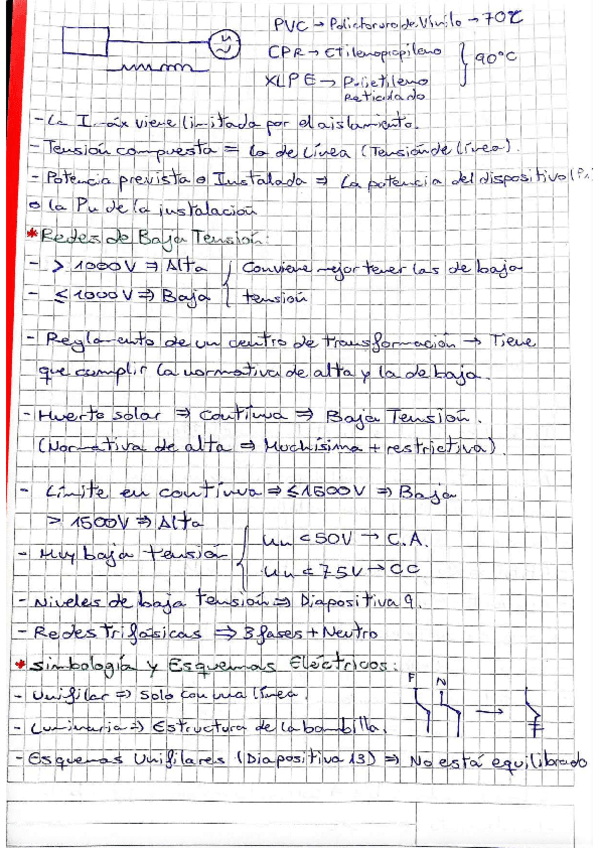 PVC → Policloruro de Vinilo → 70℃
CPR → Etilenopropileno
90°C
XLPE → Polietileno
Reticulado
- La Imáx viene limitada por el aislamiento.
- Tensión compuesta = la de línea (Tensión de línea).
- Potencia prevista o Instalada ⇒ La potencia del dispositivo (Pn)
o la Pn de la instalación
* Redes de Baja Tensión:
- > 1000V ⇒ Alta
- ≤ 1000V ⇒ Baja
Conviene mejor tener las de baja
tensión
- Reglamento de un centro de transformación → Tiene
que cumplir la normativa de alta y la de baja.
- Huerto solar ⇒ Contínua ⇒ Baja Tensión.
(Normativa de alta ⇒ Muchísima + restrictiva).
- Límite en contínua ⇒ ≤1500V ⇒ Baja
> 1500V ⇒ Alta
- Muy baja tensión
Un < 50V → C.A.
Un < 75V → CC
- Niveles de baja tensión ⇒ Diapositiva 9.
- Redes Trifásicas ⇒ 3 fases + Neutro
* Simbología y Esquemas Eléctricos:
- Unifilar ⇒ Solo con una línea.
F N →
- Luminaria ⇒ Estructura de la bombilla.
- Esquemas Unifilares (Diapositiva 13) ⇒ No está equilibrado